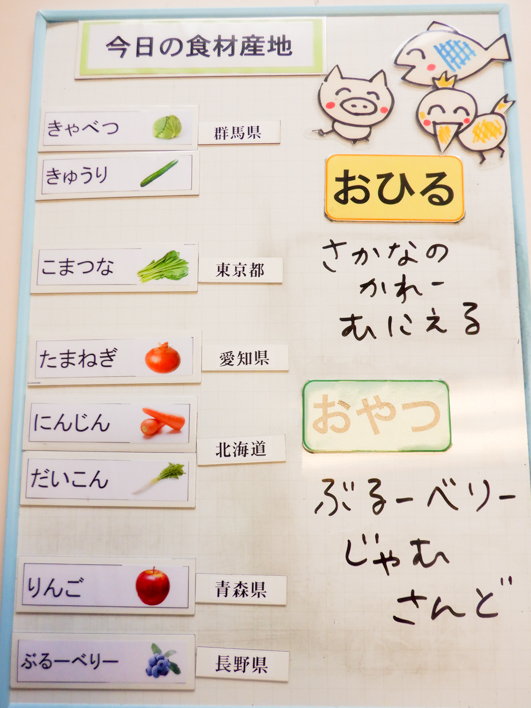 今日の食材産地
きゃべつ 群馬県
きゅうり
こまつな 東京都
たまねぎ 愛知県
にんじん
北海道
だいこん
りんご 青森県
ぶるーべりー 長野県
おひる
さかなの
かれー
むにえる
おやつ
ぶるーベリー
じゃむ
さんど